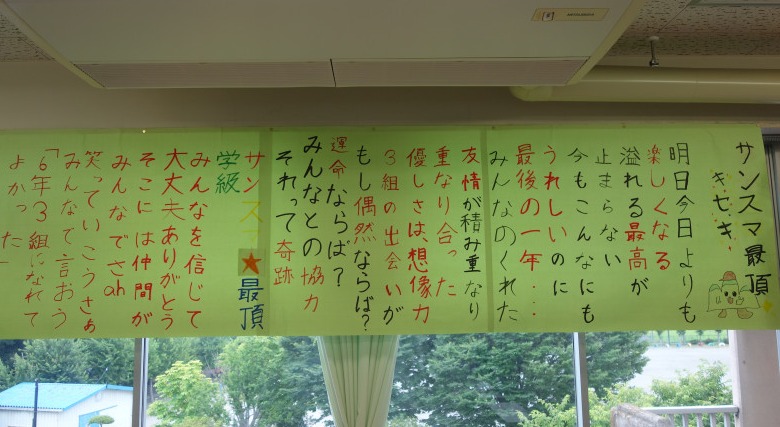 サンスマ最頂
キセキ
明日今日よりも
楽しくなる
溢れる最高が
止まらない
今もこんなにも
うれしいのに
最後の一年...
みんなのくれた
友情が積み重なり
重なり合った
優しさは、想像力
3組の出会いが
もし偶然ならば?
運命ならば?
みんなとの協力
それって奇跡
サンスマ★最頂
学級
みんなを信じて
大丈夫ありがとう
そこには仲間が
みんなでさah
笑っていこうさぁ
みんなで言おう
「6年3組になれて
よかった」